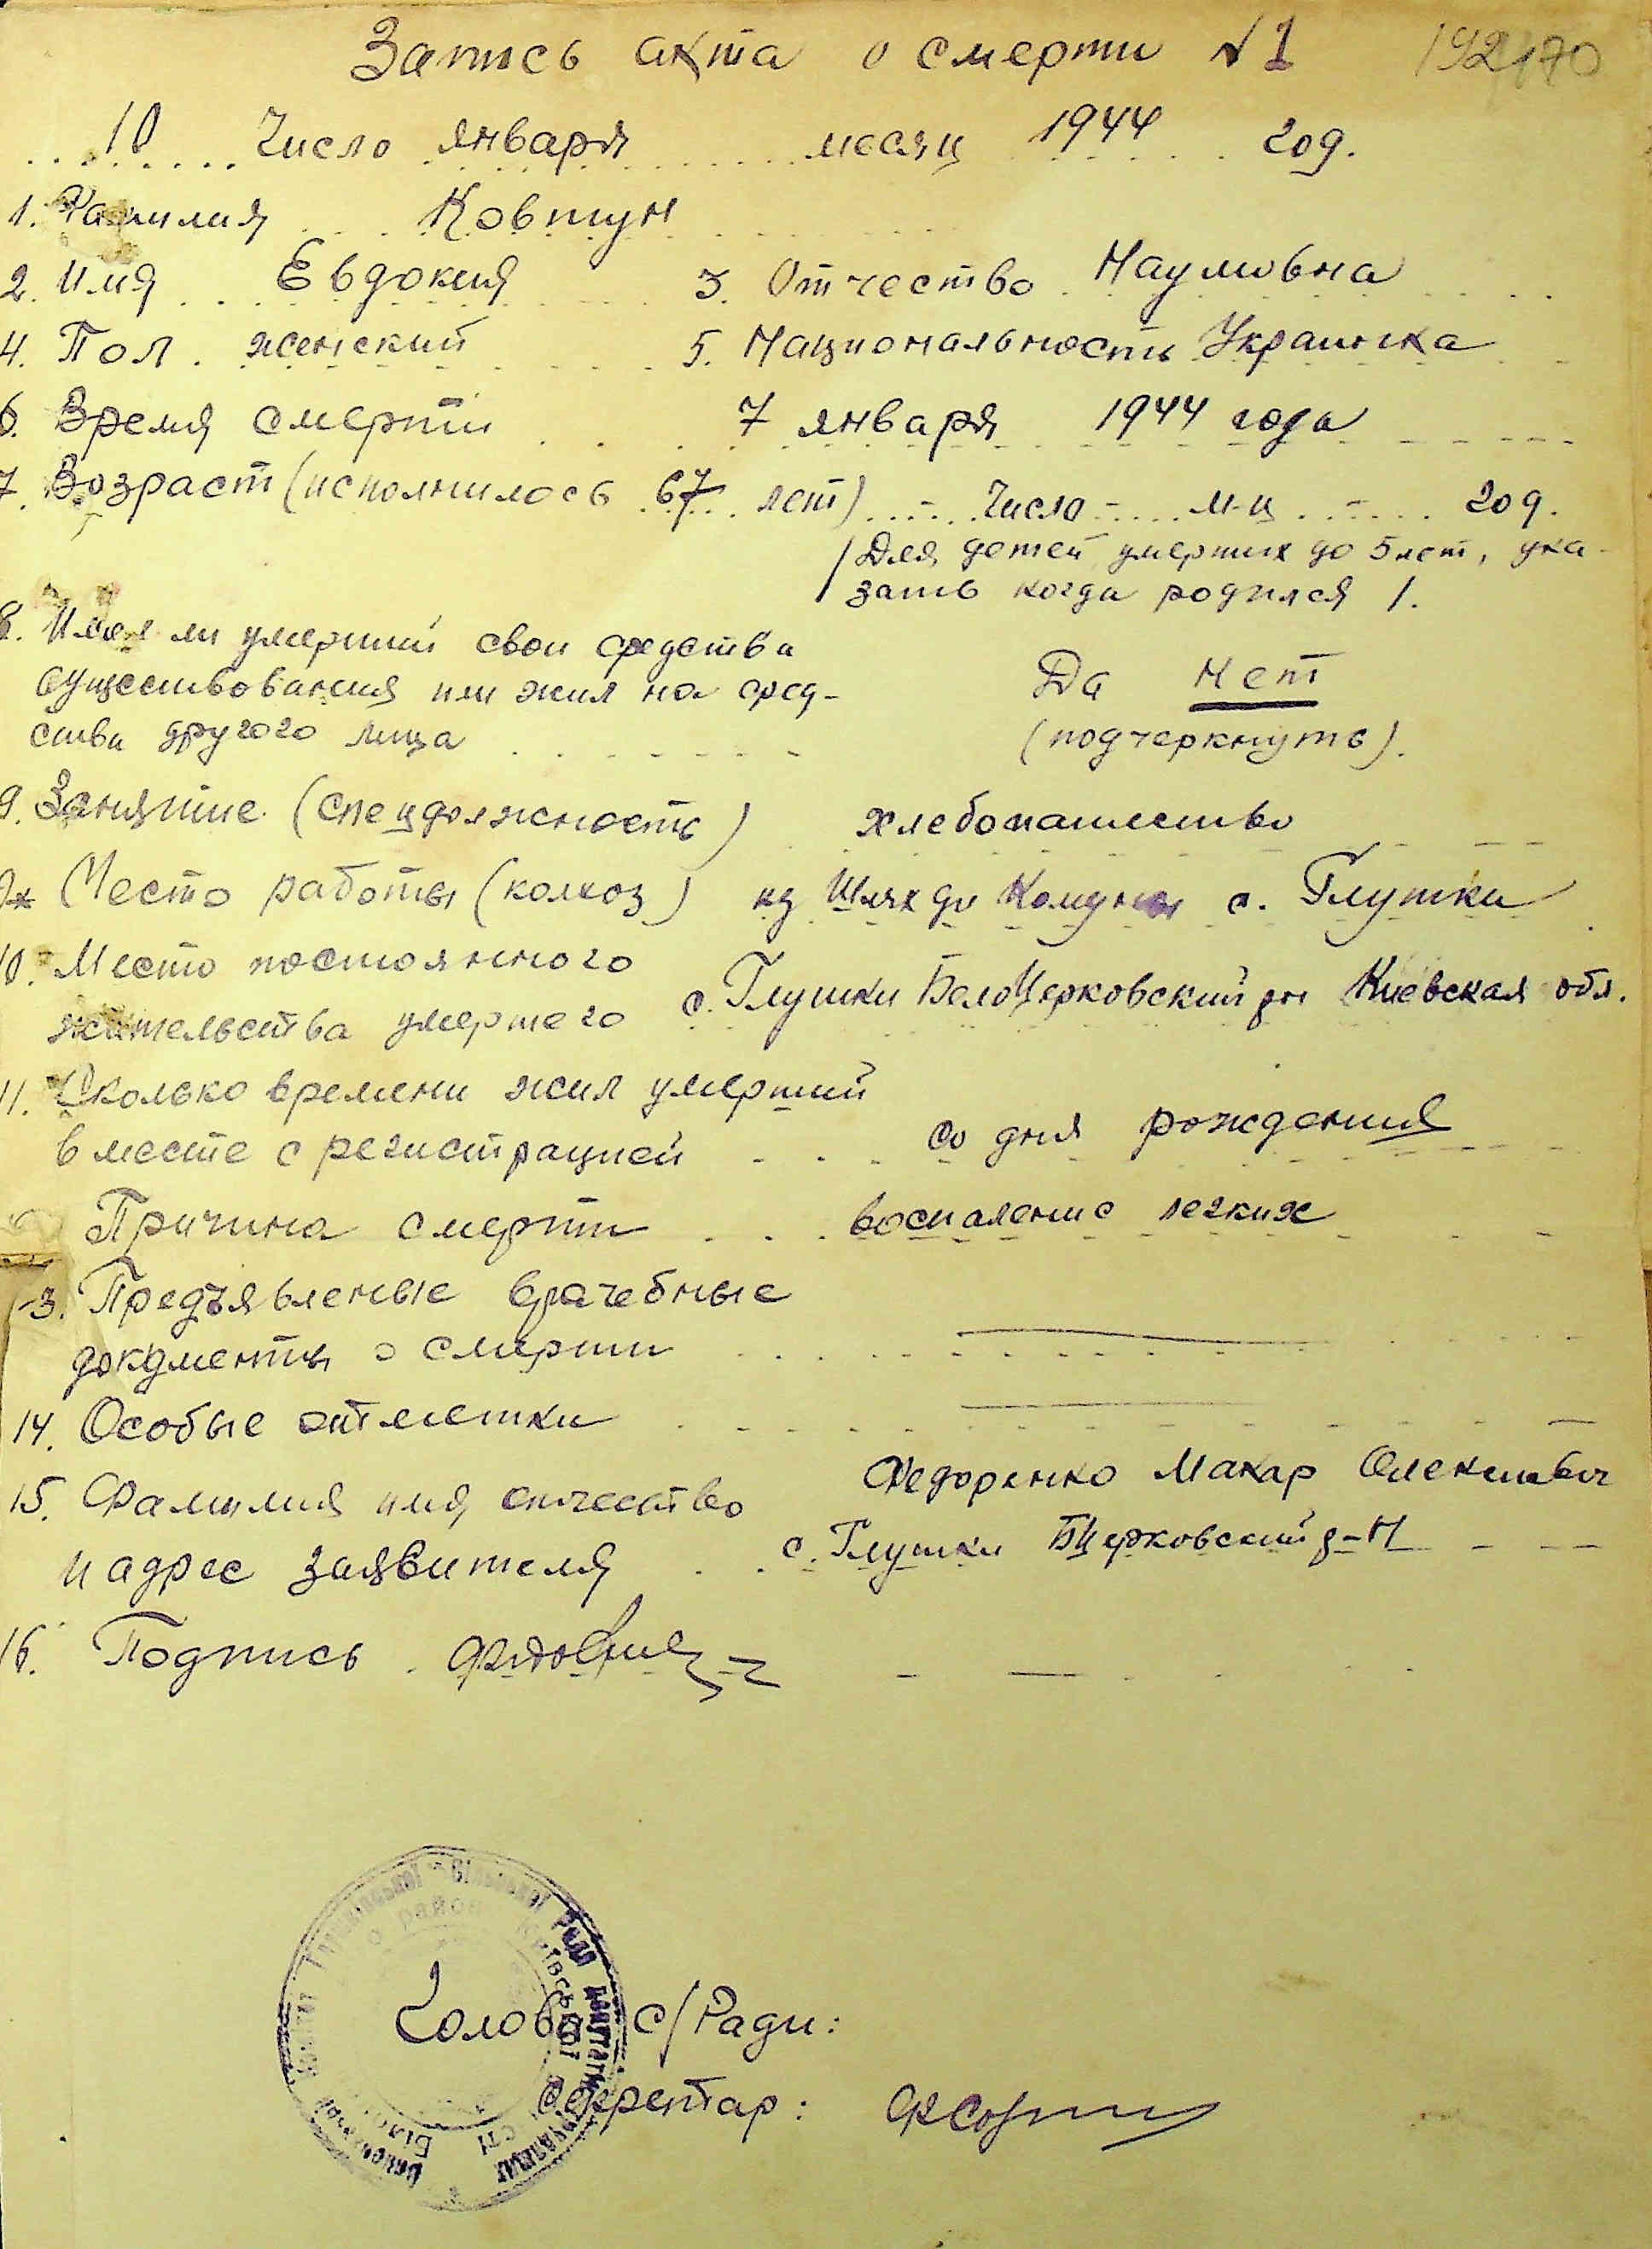 Запись акта о смерти N 1
10 Число января месяц 1944 год.
1. Фамилия Ковтун
2. Имя Евдокия 3. Отчество Наумовна
4. Пол. женский 5. Национальность Украинка
6. Время смерти 7 января 1944 года
7. Возраст (исполнилось 67 лет) - Число - м-ц - год.
/Для детей умерших до 5 лет, ука-
зать когда родился /.
8. Имел ли умерший свои средства
существования или жил на сред-
ства другого лица
Да Нет
(подчеркнуть).
9. Занятие (спец должность) хлебопашество
9* Место работы (колхоз) кз Шлях до Комуны с. Глушки
10. Место постоянного
жительства умершего с. Глушки БелоЦерковский рн Киевская обл.
11. Сколько времени жил умерший
в месте с регистрацией со дня рождения
Причина смерти воспаление легких
13. Предъявленые врачебные
документы о смерти
14. Особые отметки
15. Фамилия имя отчество Федоренко Макар Олексиевич
и адрес заявителя с. Глушки БЦерковский р-н
16. Подпись
Голова с/Ради:
Секретар: